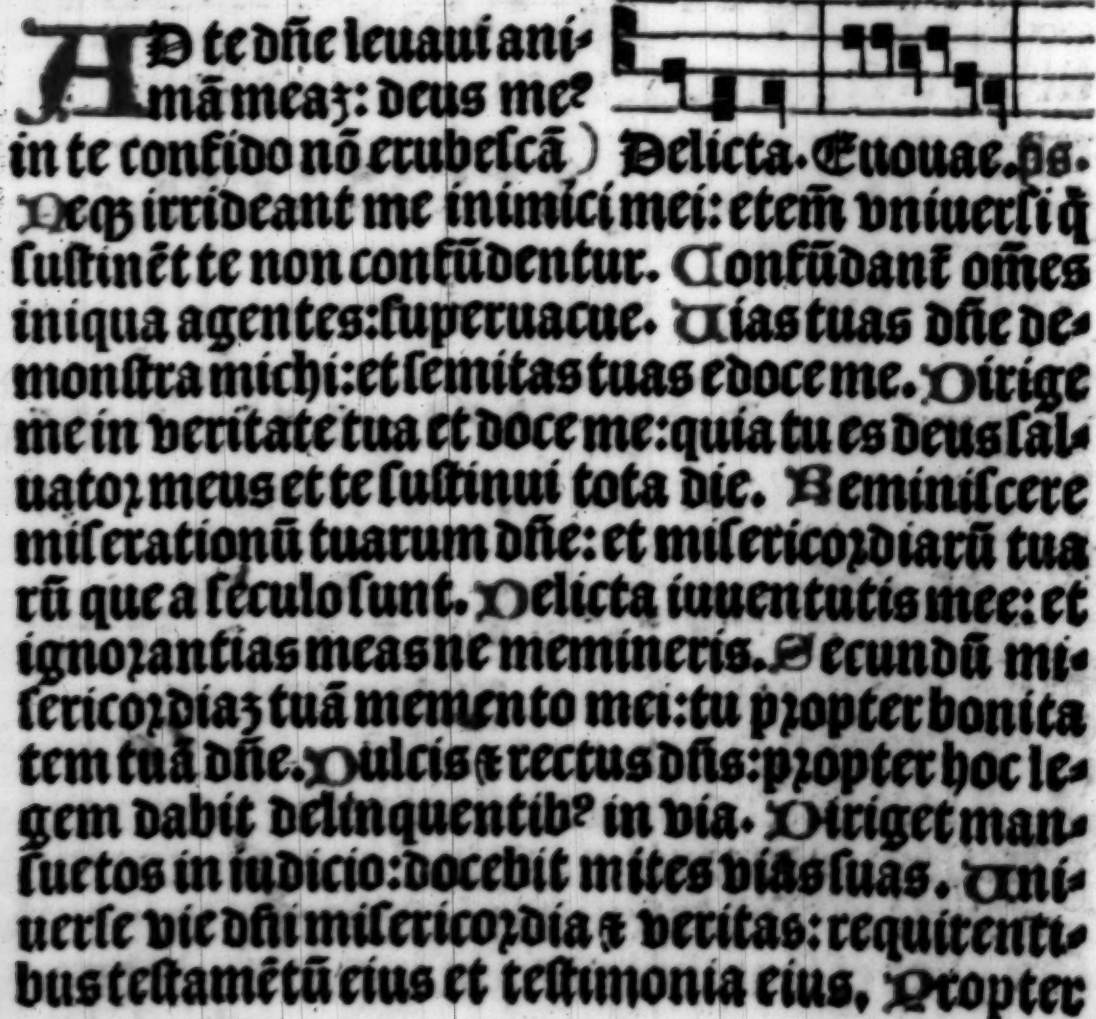 AD te dn̄e leuaui ani-
mā meaꝫ: deus meꝰ
in te confido nō erubeſcā) Delicta. Euouae. p̄s.
Neqꝫ irrideant me inimici mei: etem̄ vniuerſi q̄
ſuſtinēt te non confūdentur. Confūdant̄ om̄es
iniqua agentes: ſuperuacue. Uias tuas dn̄e de-
monſtra michi: et ſemitas tuas edoce me. Dirige
me in veritate tua et doce me: quia tu es deus ſal-
uatoꝛ meus et te ſuſtinui tota die. Reminiſcere
miſerationū tuarum dn̄e: et miſericoꝛdiarū tua
rū que a ſeculo ſunt. Delicta iuuentutis mee: et
ignoꝛantias meas ne memineris. Secundū mi-
ſericoꝛdiaꝫ tuā memento mei: tu pꝛopter bonita
tem tuā dn̄e. Dulcis ⁊ rectus dn̄s: pꝛopter hoc le-
gem dabit delinquentibꝰ in via. Diriget man-
ſuetos in iudicio: docebit mites vias ſuas. Uni-
uerſe vie dn̄i miſericoꝛdia ⁊ veritas: requirenti-
bus teſtamētū eius et teſtimonia eius. Propter